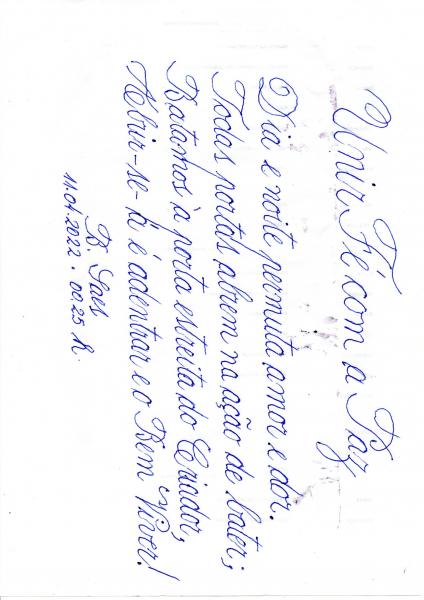 Unir Fé com a Paz
Dia e noite permuta amor e dor.
Todas portas abrem na ação de bater;
Batamos à porta estreita do Criador,
Abrir-se-á é adentrar e o Bem Viver!
B. Saes
11.01.2022 • 00.25 h.